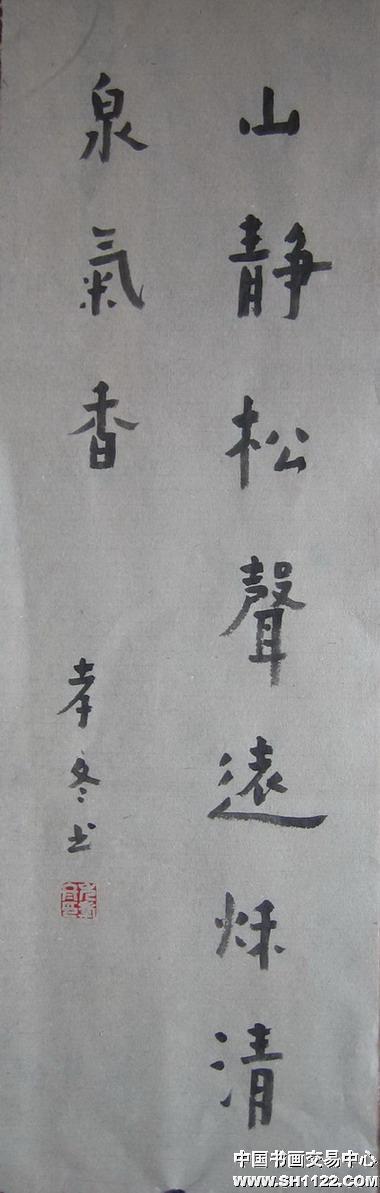 山静松聲遠秌清
泉氣香
冬书
中国书画交易中心
www.SH1122.com